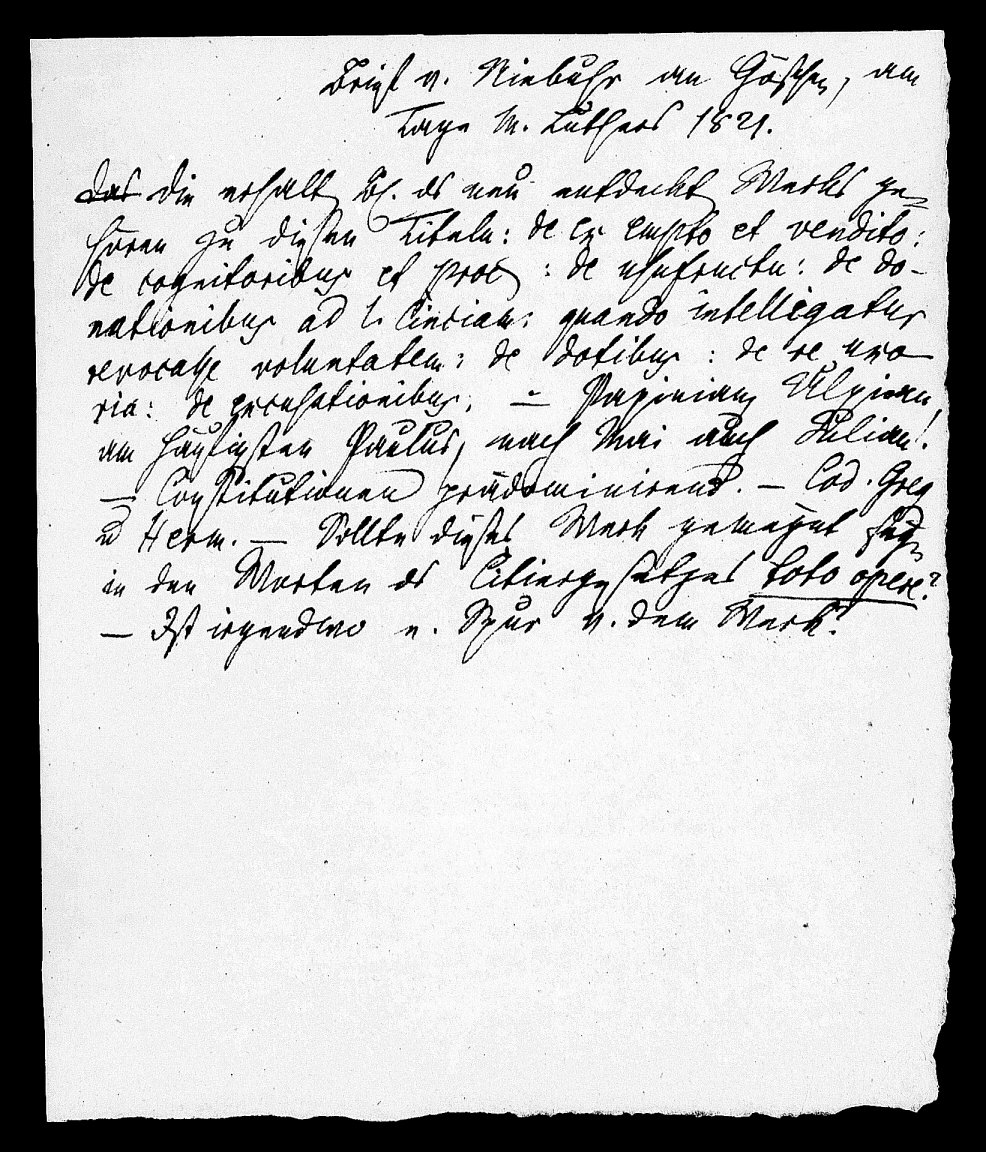 Brief v. Niebuhr an Göschen, am
Tage M. Luthers 1821.
Das die erhalt. Bl. ds neu entdeckt Werks ge-
hören zu diesen Titeln: de ex empto et vendito:
de cognitoribus et proc : de usufructu: de do-
nationibus ad l. Cinciam: quando intelligatur
revocasse voluntatem: de dotibus : de re uxo
ria: de excusationibus. — Papinian, Ulpian,
am häufigsten Paulus, nach Mai auch Julian!.
— Constitutionen prädominirend. — Cod. Greg
u Herm. — Sollte dieses Werk gemeynt seyn
in den Worten ds Citiergesetzes toto opere?
— Ist irgendwo e. Spur v. dem Werk?